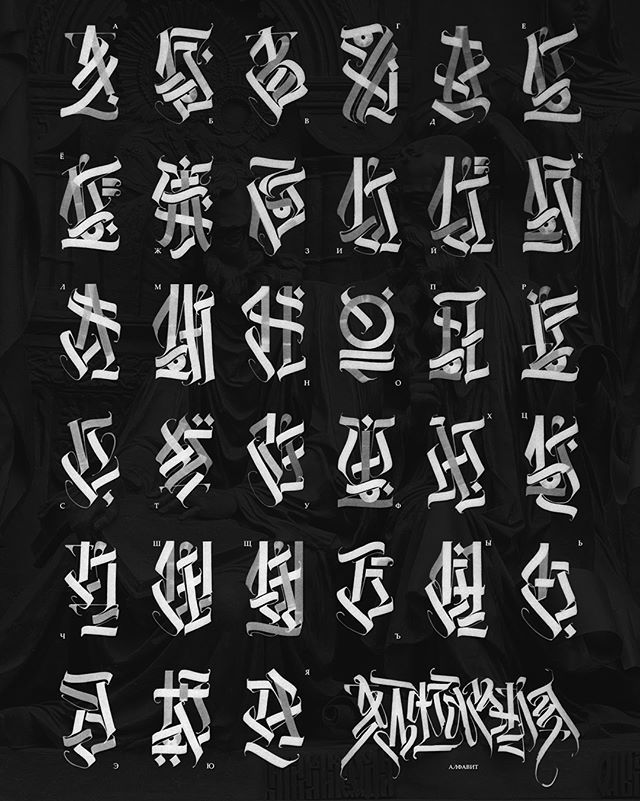 А Б В Г Д Е
Ё Ж З И Й К
Л М Н О П Р
С Т У Ф Х Ц
Ч Ш Щ Ъ Ы Ь
Э Ю Я
АЛФАВИТ